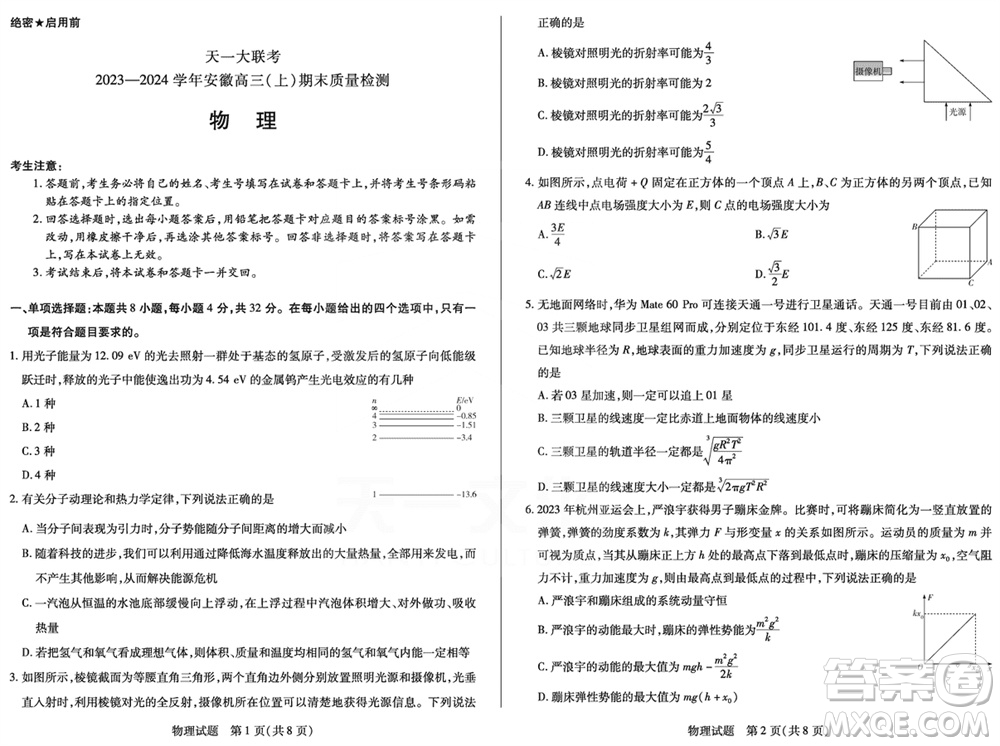 绝密★启用前
天一大联考
2023—2024 学年安徽高三(上)期末质量检测
物 理
考生注意:
1. 答题前,考生务必将自己的姓名、考生号填写在试卷和答题卡上,并将考生号条形码粘
贴在答题卡上的指定位置。
2. 回答选择题时,选出每小题答案后,用铅笔把答题卡对应题目的答案标号涂黑。如需
改动,用橡皮擦干净后,再选涂其他答案标号。回答非选择题时,将答案写在答题卡
上,写在本试卷上无效。
3. 考试结束后,将本试卷和答题卡一并交回。
一、单项选择题:本题共 8 小题,每小题 4 分,共 32 分。在每小题给出的四个选项中,只有一
项是符合题目要求的。
1. 用光子能量为 12.09 eV 的光去照射一群处于基态的氢原子,受激发后的氢原子向低能级
跃迁时,释放的光子中能使逸出功为 4.54 eV 的金属钨产生光电效应的有几种
A. 1 种
B. 2 种
C. 3 种
D. 4 种
n E/eV
∞ 0
4 -0.85
3 -1.51
2 -3.4
1 -13.6
2. 有关分子动理论和热力学定律,下列说法正确的是
A. 当分子间表现为引力时,分子势能随分子间距离的增大而减小
B. 随着科技的进步,我们可以通过降低海水温度释放出大量的内能,且不产生
其他影响,进而解决能源危机
C. 一汽泡从恒温的水池底部缓慢向上浮动,若汽泡内的气体是理想气体,则其吸收
热量
D. 若把氢气和氧气看成理想气体,则体积、质量和温度相等的氢气和氧气内能一定相等
3. 如图所示,棱镜截面为等腰直角三角形,两个直角边外侧分别放置光源和摄像机,光垂
直入射到棱镜,利用棱镜对光的全反射,摄像机可以清楚地捕获光源信息。下列说法
物理试题 第 1 页(共 8 页)
正确的是
A. 棱镜对照明光的折射率可能为 4/3
B. 棱镜对照明光的折射率可能为 √3
C. 棱镜对照明光的折射率可能为 2√3/3
D. 棱镜对照明光的折射率可能为 5/4
摄像机
光源
4. 如图所示,点电荷 + Q 固定在正方体的一个顶点 A 上,B、C 为正方体的另两个顶点,已知
AB 连线中点电场强度大小为 E,则 C 点的电场强度大小为
A. 3E/4 B. √3 E
C. √2 E D. √3/2 E
B
A
C
5. 无地面网络时,华为 Mate 60 Pro 可连接天通一号进行卫星通话。天通一号目前由 01、02、
03 共三颗地球同步卫星组网而成,分别定位于东经 101.4 度、东经 125 度、东经 81.6 度。
已知地球半径为 R,地球表面的重力加速度为 g,同步卫星运行的周期为 T,下列说法正确
的是
A. 若 03 星加速,则一定可以追上 01 星
B. 三颗卫星的线速度一定比赤道上地面物体的线速度小
C. 三颗卫星的轨道半径一定都是 ∛(gR²T²/4π²)
D. 三颗卫星的线速度大小一定都是 ∛(2πgT²R²)
6. 2023 年杭州亚运会上,严浪宇获得男子蹦床金牌。比赛时,可将蹦床简化为一竖直放置的
弹簧,弹簧的劲度系数为 k,其弹力 F 与形变量 x 的关系如图所示。运动员的质量为 m 并
可视为质点,当他从蹦床正上方 h 处的最高点下落到最低点时,蹦床的压缩量为 x₀,空气阻
力不计,重力加速度为 g。在由最高点到最低点的过程中,下列说法正确的是
A. 严浪宇和蹦床组成的系统动量守恒
B. 严浪宇的动能最大时,蹦床的弹性势能为 m²g²/k
C. 严浪宇的动能的最大值为 mgh − m²g²/2k
D. 蹦床的弹性势能的最大值为 mg(h + x₀)
F
kx₀
物理试题 第 2 页(共 8 页)
答案圈
MXQE.COM